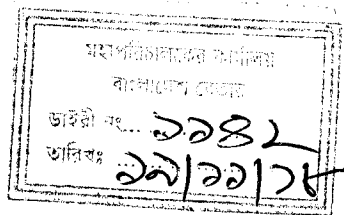 মহাপরিচালকের কার্যালয়
বাংলাদেশ বেতার
ডাইরী নং... ১১৪২
তারিখঃ ১৯|১১|১৮